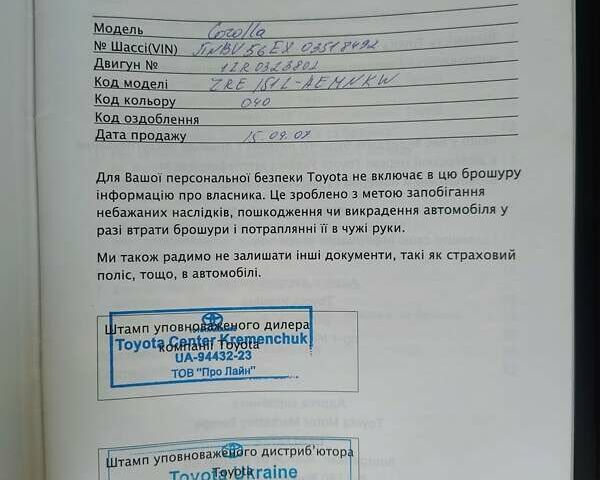 Модель Corolla
№ Шассі(VIN) JTNBV56EX03518492
Двигун № 1ZR0323802
Код моделі ZRE151L-AEMNKW
Код кольору 040
Код оздоблення
Дата продажу 15.09.07
Для Вашої персональної безпеки Toyota не включає в цю брошуру
інформацію про власника. Це зроблено з метою запобігання
небажаних наслідків, пошкодження чи викрадення автомобіля у
разі втрати брошури і потраплянні її в чужі руки.
Ми також радимо не залишати інші документи, такі як страховий
поліс, тощо, в автомобілі.
Штамп уповноваженого дилера
Toyota Center Kremenchuk
компанії Toyota
UA-94432-23
ТОВ "Про Лайн"
Штамп уповноваженого дистриб'ютора
Toyota
Toyota Ukraine